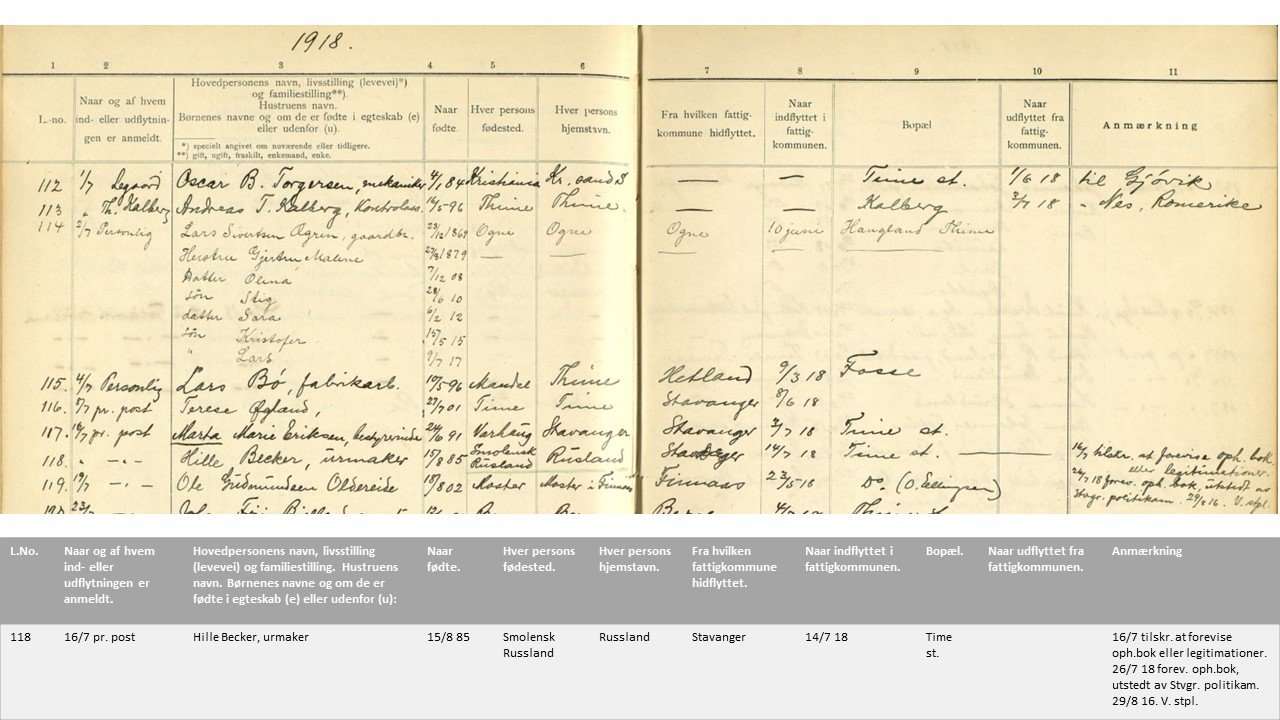 1918.
1 2 3 4 5 6 7 8 9 10 11
L.-no.
Naar og af hvem
ind- eller udflytnin-
gen er anmeldt.
Hovedpersonens navn, livsstilling (levevei)*)
og familiestilling**).
Hustruens navn.
Børnenes navne og om de er fødte i egteskab (e)
eller udenfor (u).
*) specielt angivet om nuværende eller tidligere.
**) gift, ugift, fraskilt, enkemand, enke.
Naar
fødte.
Hver persons
fødested.
Hver persons
hjemstavn.
Fra hvilken fattig-
kommune hidflyttet.
Naar
indflyttet i
fattig-
kommunen.
Bopæl
Naar
udflyttet fra
fattig-
kommunen.
Anmærkning
112 1/7 Legaard Oscar B. Torgersen, mekaniker 4/1 84 Kristiania Kr. sand S — — Time st. 1/6 18 til Gjøvik
113 " Th. Kalberg Andreas T. Kalberg, Thime Thime. — — Kalberg 2/7 18 " Nes, Romerike
114 2/7 Personlig Lars Sivertsen Ogrin, gaardbr. 1869 Ogne Ogne Ogne 10 juni Haugland Thime
Hustru Gjertru Malene 1879 — — — — —
Datter Olina 7/12 08
søn Stig 28/6 10
datter Sara 6/2 12
søn Kristofer 15/5 15
" Lars 9/7 17
115. 4/7 Personlig Lars Bø, fabrikarb. 19/5 96 Mandal Thime Hetland 9/3 18 Fosse
116. 8/7 pr. post Terese Øgland, 27/7 01 Time Time Stavanger 8/6 18
117. 10/7 pr. post Marta Marie Eriksen, bestyrerinde 24/6 91 Varhaug Stavanger Stavanger 2/7 18 Time st.
118. " —"— Hille Becker, urmaker 15/8 85 Smolensk Russland Rusland Stavanger 14/7 18 Time st. — 16/7 tilskr. at forevise oph. bok
eller legitimationer.
119. 19/7 —"— Ole Gudmundsen Oldereide 18/8 02 Moster Moster i Finnaas Finnaas 23/5-18 Do. (O. Ellingsen) 26/7 18 forev. oph. bok, utstedt av
Stvgr. politikam. 29/8 16. V. stpl.
L.No.
Naar og af hvem
ind- eller
udflytningen er
anmeldt.
Hovedpersonens navn, livsstilling
(levevei) og familiestilling. Hustruens
navn. Børnenes navne og om de er
fødte i egteskab (e) eller udenfor (u):
Naar
fødte.
Hver persons
fødested.
Hver persons
hjemstavn.
Fra hvilken
fattigkommune
hidflyttet.
Naar indflyttet i
fattigkommunen.
Bopæl.
Naar udflyttet fra
fattigkommunen.
Anmærkning
118
16/7 pr. post
Hille Becker, urmaker
15/8 85
Smolensk
Russland
Russland
Stavanger
14/7 18
Time
st.
16/7 tilskr. at forevise
oph.bok eller legitimationer.
26/7 18 forev. oph.bok,
utstedt av Stvgr. politikam.
29/8 16. V. stpl.